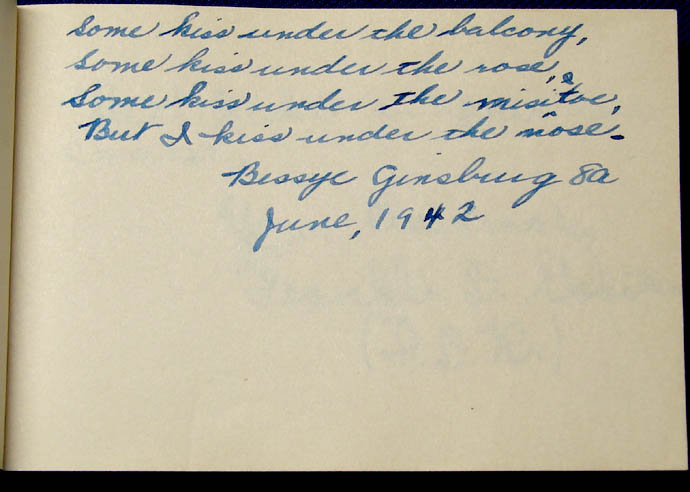 Some kiss under the balcony,
Some kiss under the rose,
Some kiss under the misitoe,
But I kiss under the nose.
Bessye Ginsbrug 8a
June, 1942